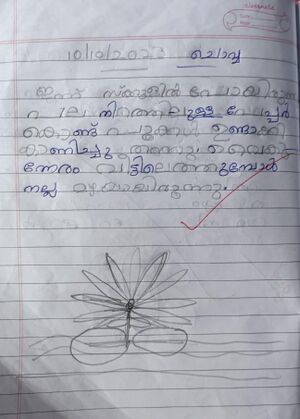 10/10/2023 ചൊവ്വ
ഇന്ന് സ്കൂളിൽ പോയിരുന്നു
പല നിറത്തിലുള്ള പേപ്പർ
കൊണ്ട് പൂക്കൾ ഉണ്ടാക്കി
കാണിച്ചു തന്നു. വൈകു
ന്നേരം വീട്ടിലെത്തുമ്പോൾ
നല്ല മഴയായിരുന്നു.